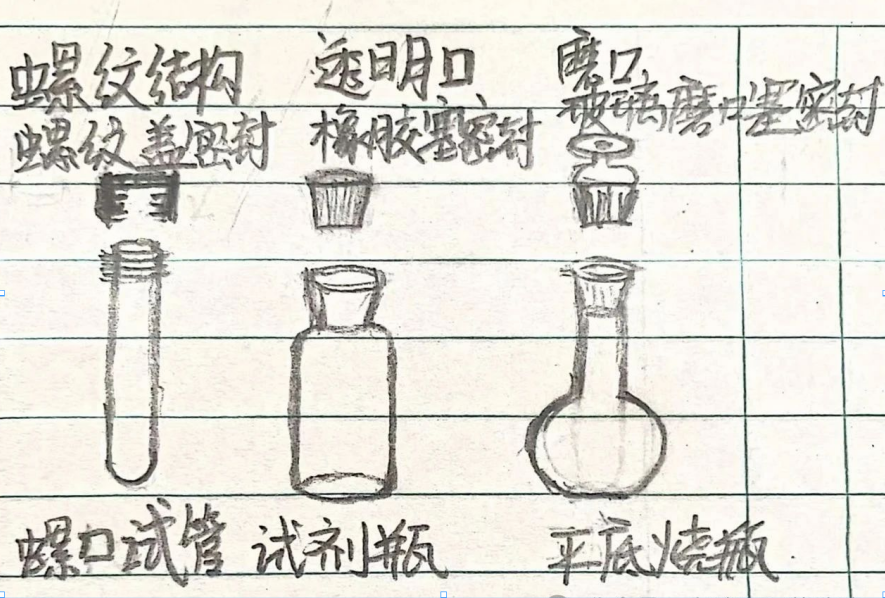 螺纹结构
螺纹盖密封
透明口
橡胶塞密封
磨口
玻璃磨口塞密封
螺口试管
试剂瓶
平底烧瓶